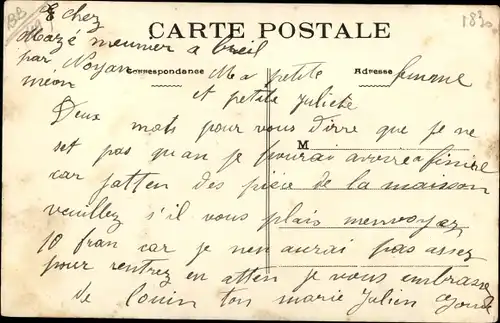 E chez
CARTE POSTALE
1830
Mazé meunier a breil
par Noyan
Correspondance
Adresse
méon
Ma petite femme
et petite Juliete
Deux mots pour vous dirre que je ne
M
set pas quan je pourai
car jatten des pièce de la maisson
veuillez s'il vous plais menvoyez
10 fran car je nen aurai pas assez
pour rentrez en atten je vous embrasse
de Louin ton marie Julien